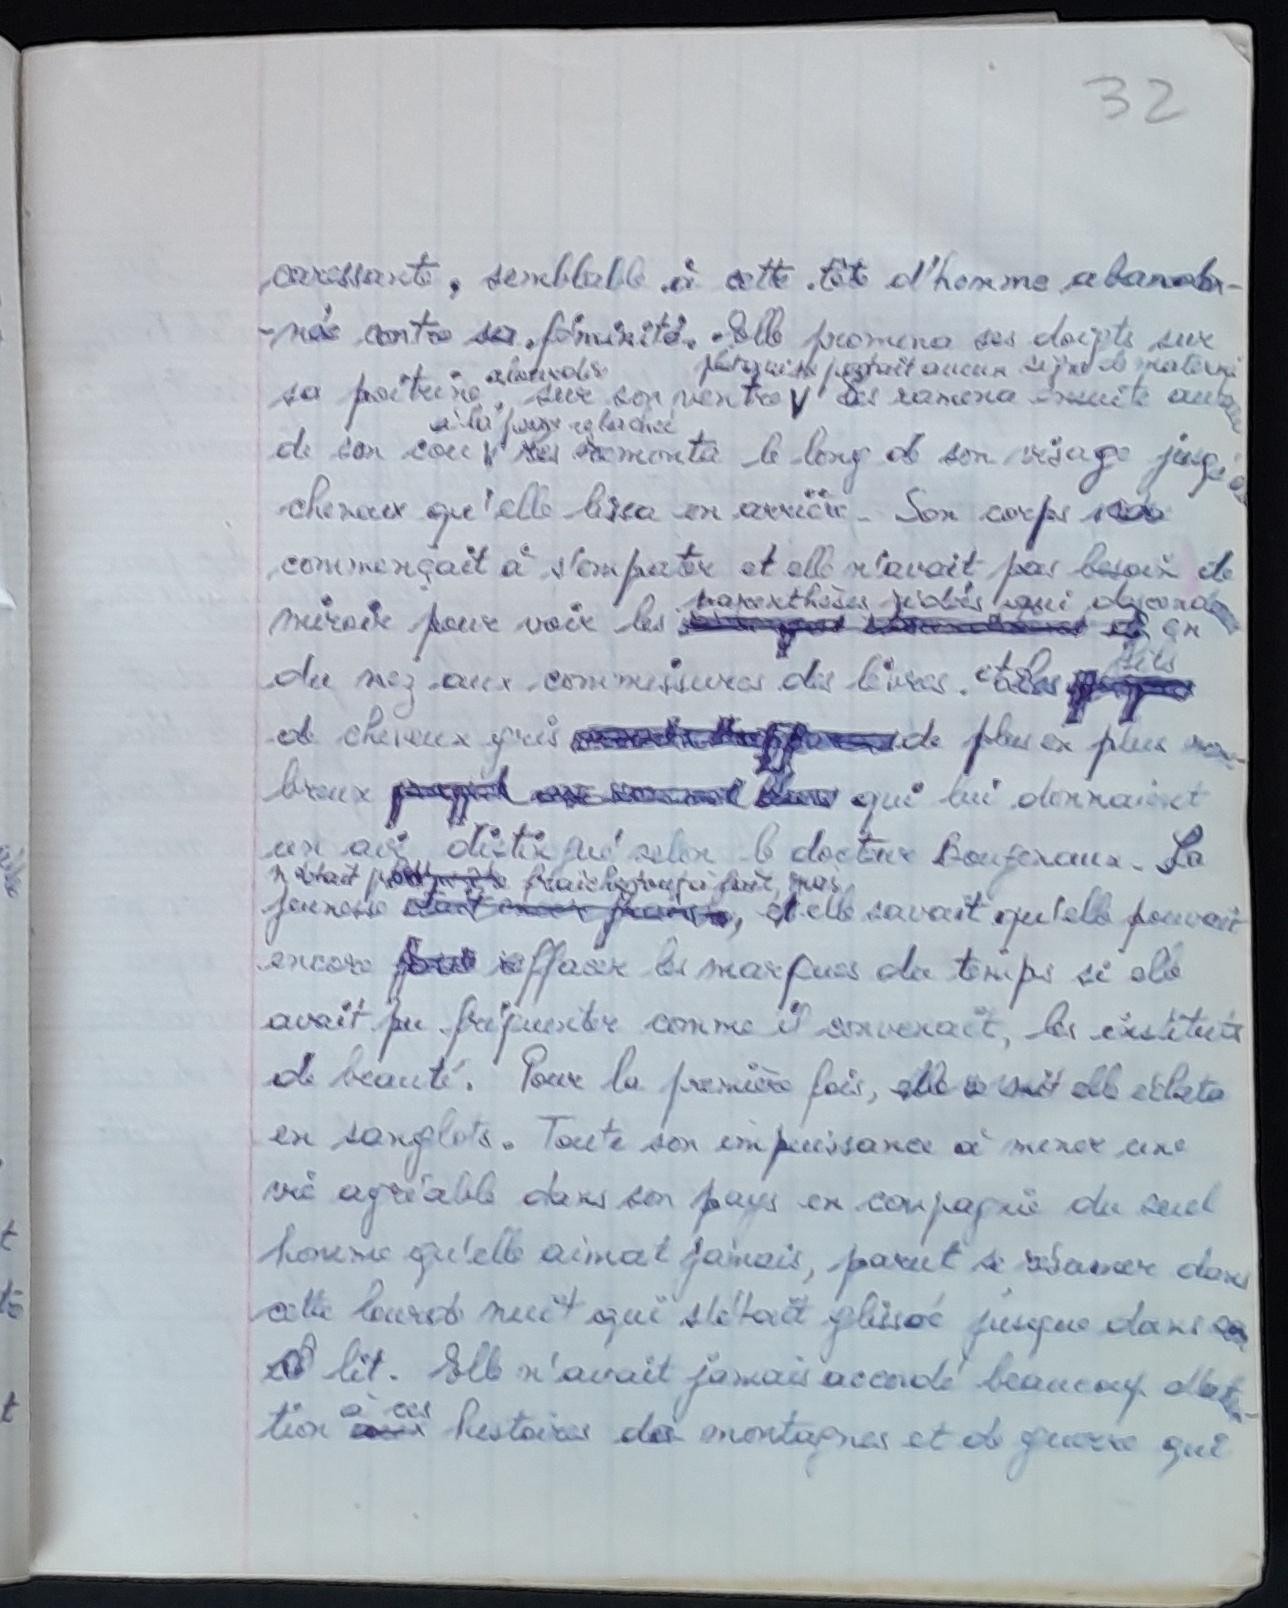 32
caressante, semblable à cette tête d'homme abandon-
-née contre sa féminité. Elle promena ses doigts sur
alourdie
sa poitrine, sur son ventre V les ramena ensuite
à la peau relâchée
de son cou V les remonta le long de son visage
cheveux qu'elle lissa en arrière. Son corps
commençait à s'empâter et elle n'avait pas besoin de
parenthèses ridées qui
miroir pour voir les
du nez aux commissures des lèvres. et les
fils
de cheveux gris de plus en plus nom-
breux qui lui donnaient
un air distingué selon le docteur
n'était fraîche tout à fait, mais
jeunesse et elle savait qu'elle pouvait
encore effacer les marques du temps si elle
avait pu fréquenter comme il convenait, les instituts
de beauté. Pour la première fois, elle se mit elle éclata
en sanglots. Toute son impuissance à mener une
vie agréable dans son pays en compagnie du seul
homme qu'elle aimat jamais, parut se résumer dans
cette lourde nuit qui s'était glissée jusque dans
lit. Elle n'avait jamais accordé beaucoup d'atten-
à ces
tion histoires des montagnes et de guerre qui